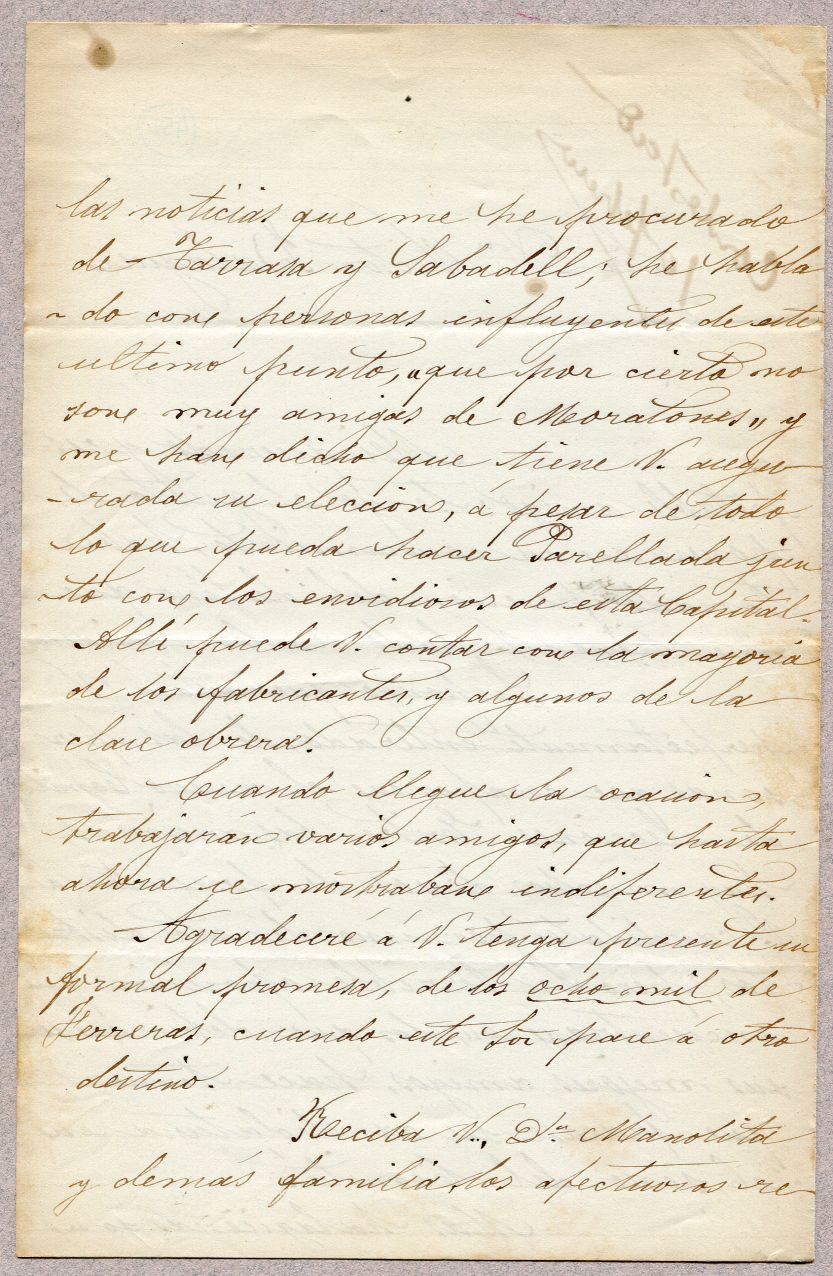 las noticias que me he procurado
de Tarrasa y Sabadell; he habla
-do con personas influyentes de este
ultimo punto, "que por cierto no
son muy amigas de Moratones" y
me han dicho que tiene V. asegu-
-rada su elección, á pesar de todo
lo que pueda hacer Parellada jun
-to con los envidiosos de esta Capital.
Allí puede V. contar con la mayoria
de los fabricantes, y algunos de la
clase obrera.
Cuando llegue la ocasion,
trabajarán varios amigos, que hasta
ahora se mostraban indiferentes.
Agradeceré á V. tenga presente su
formal promesa, de los ocho mil de
Ferreras, cuando este Sor pase á otro
destino.
Reciba V., Dª Manolita
y demás familia, los afectuosos re